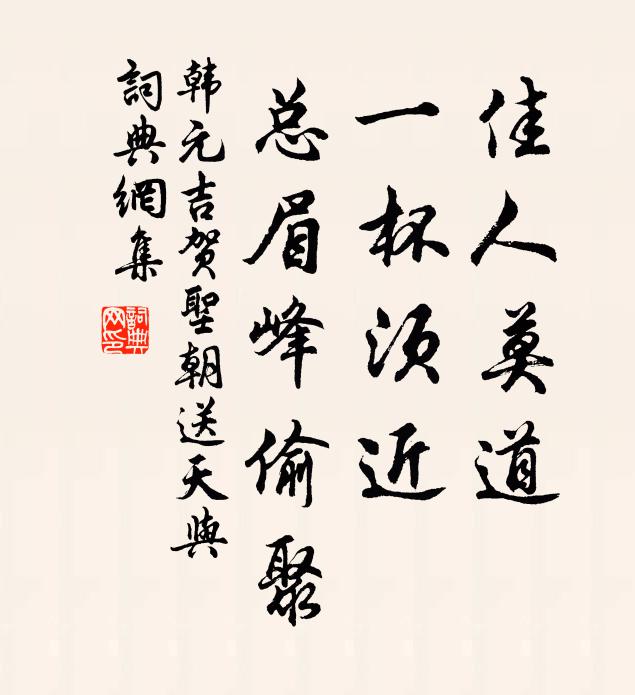 佳人莫道
一杯须近
总眉峰偷聚
韩元吉贺聖朝送天與
詞典網集
詞典网印